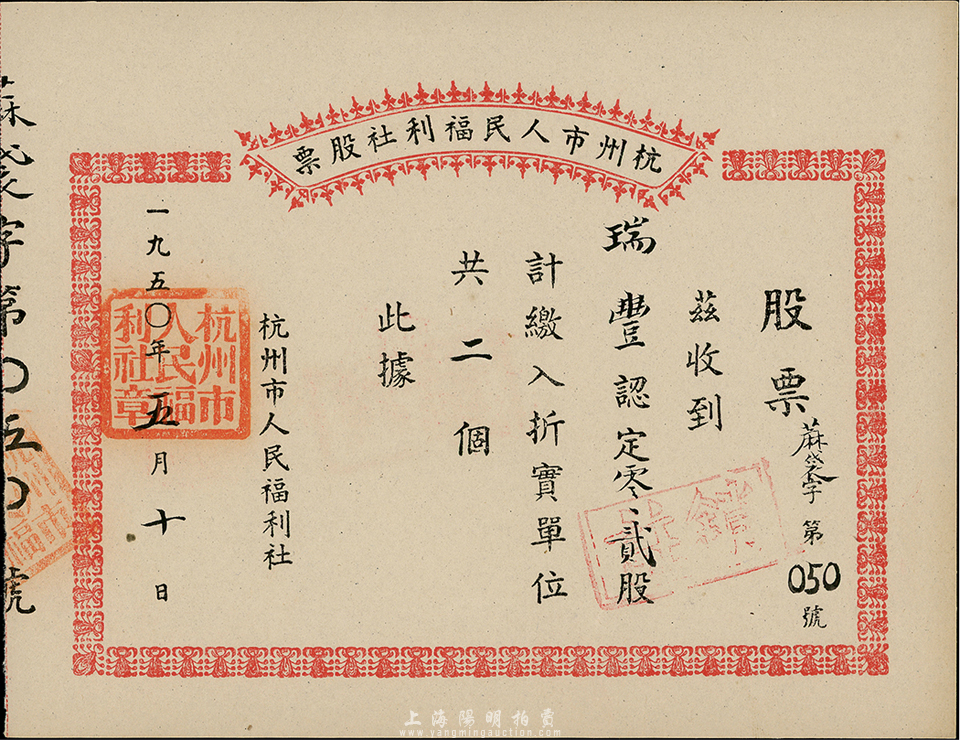 杭州市人民福利社股票
股票
蔴袋字第050號
茲收到
瑞豐認定零貳股
計繳入折實單位
共二個
此據
杭州市人民福利社
一九五〇年五月十日
杭州市
人民福
利社章
蔴袋字第〇五〇號
上海陽明拍賣
www.yangmingauction.com